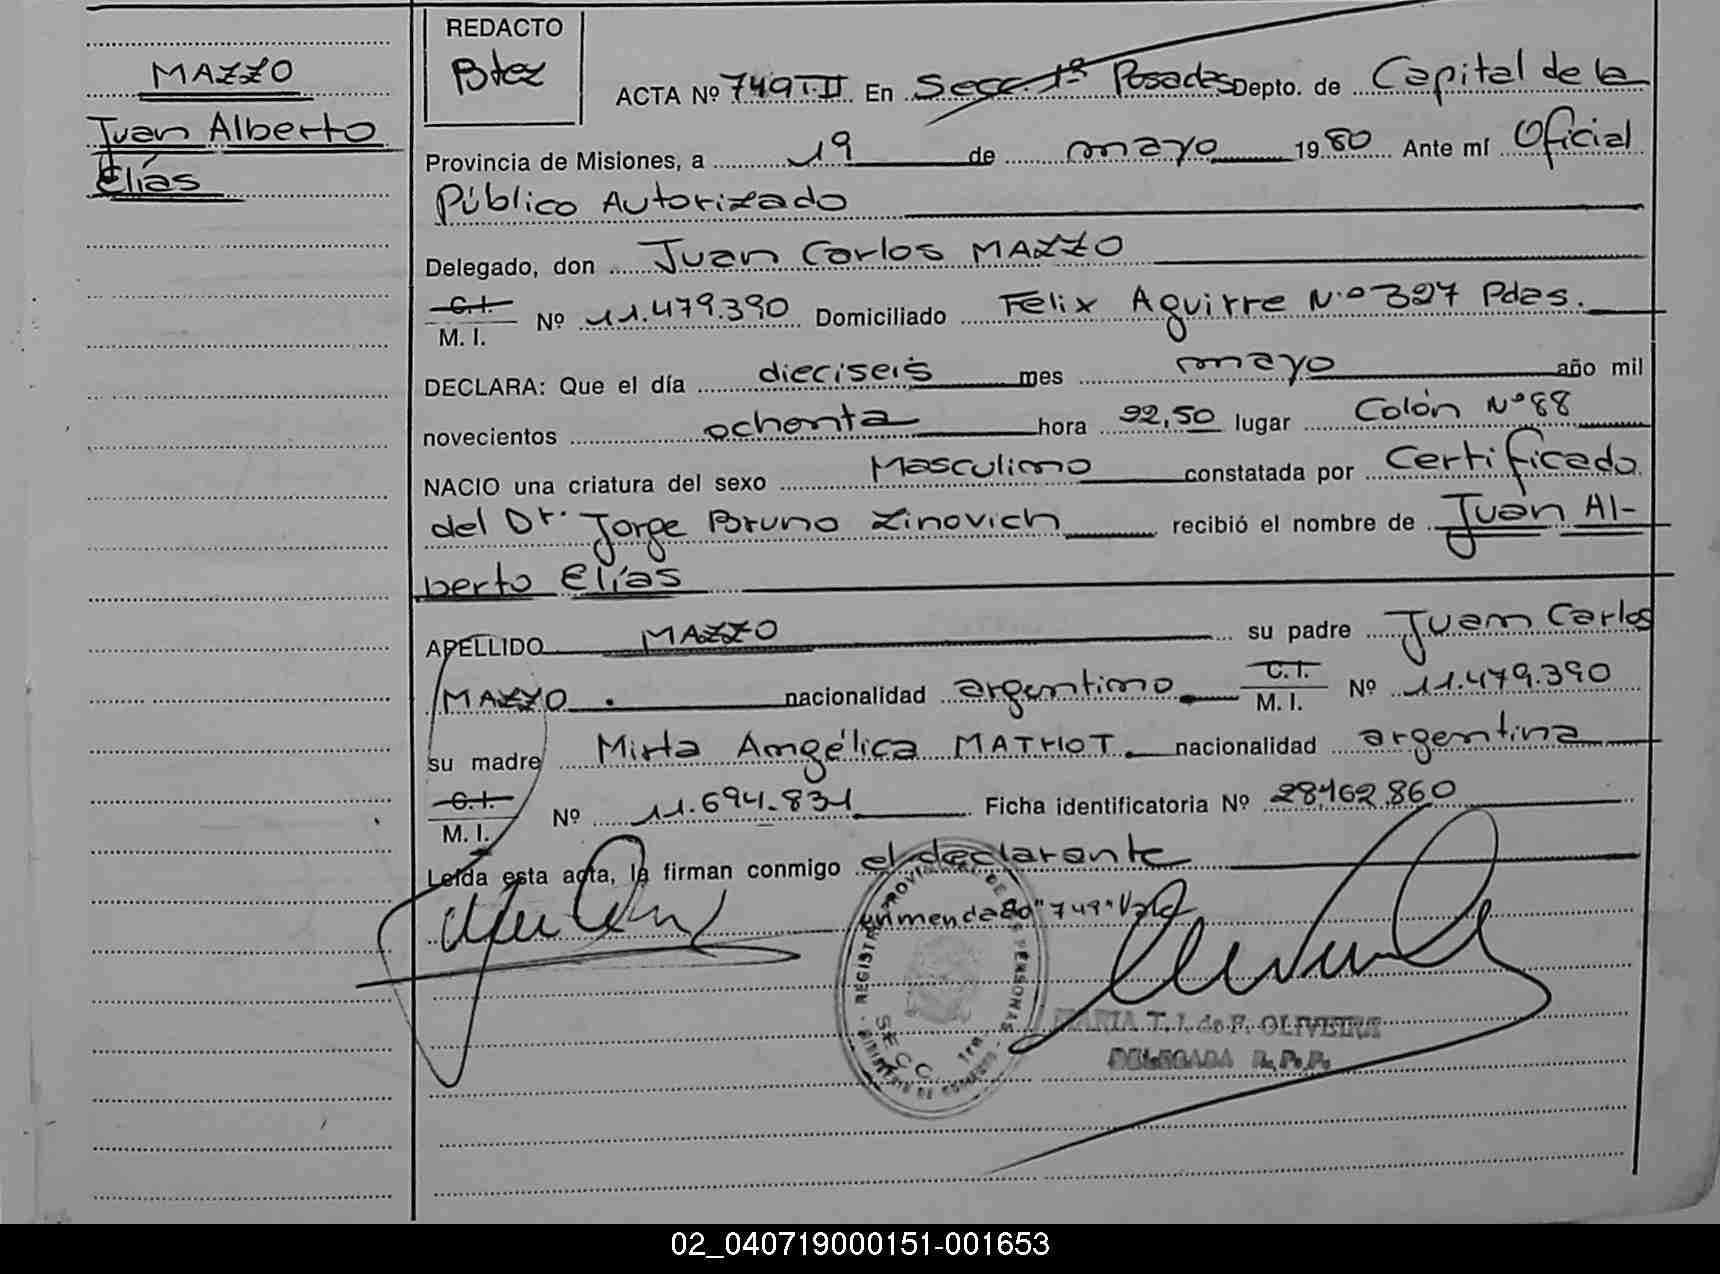 MAZZO
Juan Alberto
Elías
REDACTO
Btez
ACTA Nº 749 T.II En Secc. 1ª Posadas Depto. de Capital de la
Provincia de Misiones, a 19 de mayo 1980 Ante mí Oficial
Público Autorizado
Delegado, don Juan Carlos MAZZO
C.I.
M. I. Nº 11.479.390 Domiciliado Felix Aguirre Nº 327 Pdas.
DECLARA: Que el día dieciseis mes mayo año mil
novecientos ochenta hora 22,50 lugar Colón Nº 88
NACIO una criatura del sexo Masculino constatada por Certificado
del Dr. Jorge Bruno Zinovich recibió el nombre de Juan Al-
berto Elías
APELLIDO MAZZO su padre Juan Carlos
MAZZO. nacionalidad argentino C.I.
M. I. Nº 11.479.390
su madre Mirta Angélica MATHOT. nacionalidad argentina
C.I.
M. I. Nº 11.694.831 Ficha identificatoria Nº 28.162.860
Leída esta acta, la firman conmigo el declarante
enmendado "749" Vale
REGISTRO PROVINCIAL DE LAS PERSONAS
SECC. 1ra.
MARIA T. J. de F. OLIVEIRA
DELEGADA R. P. P.
02_040719000151-001653